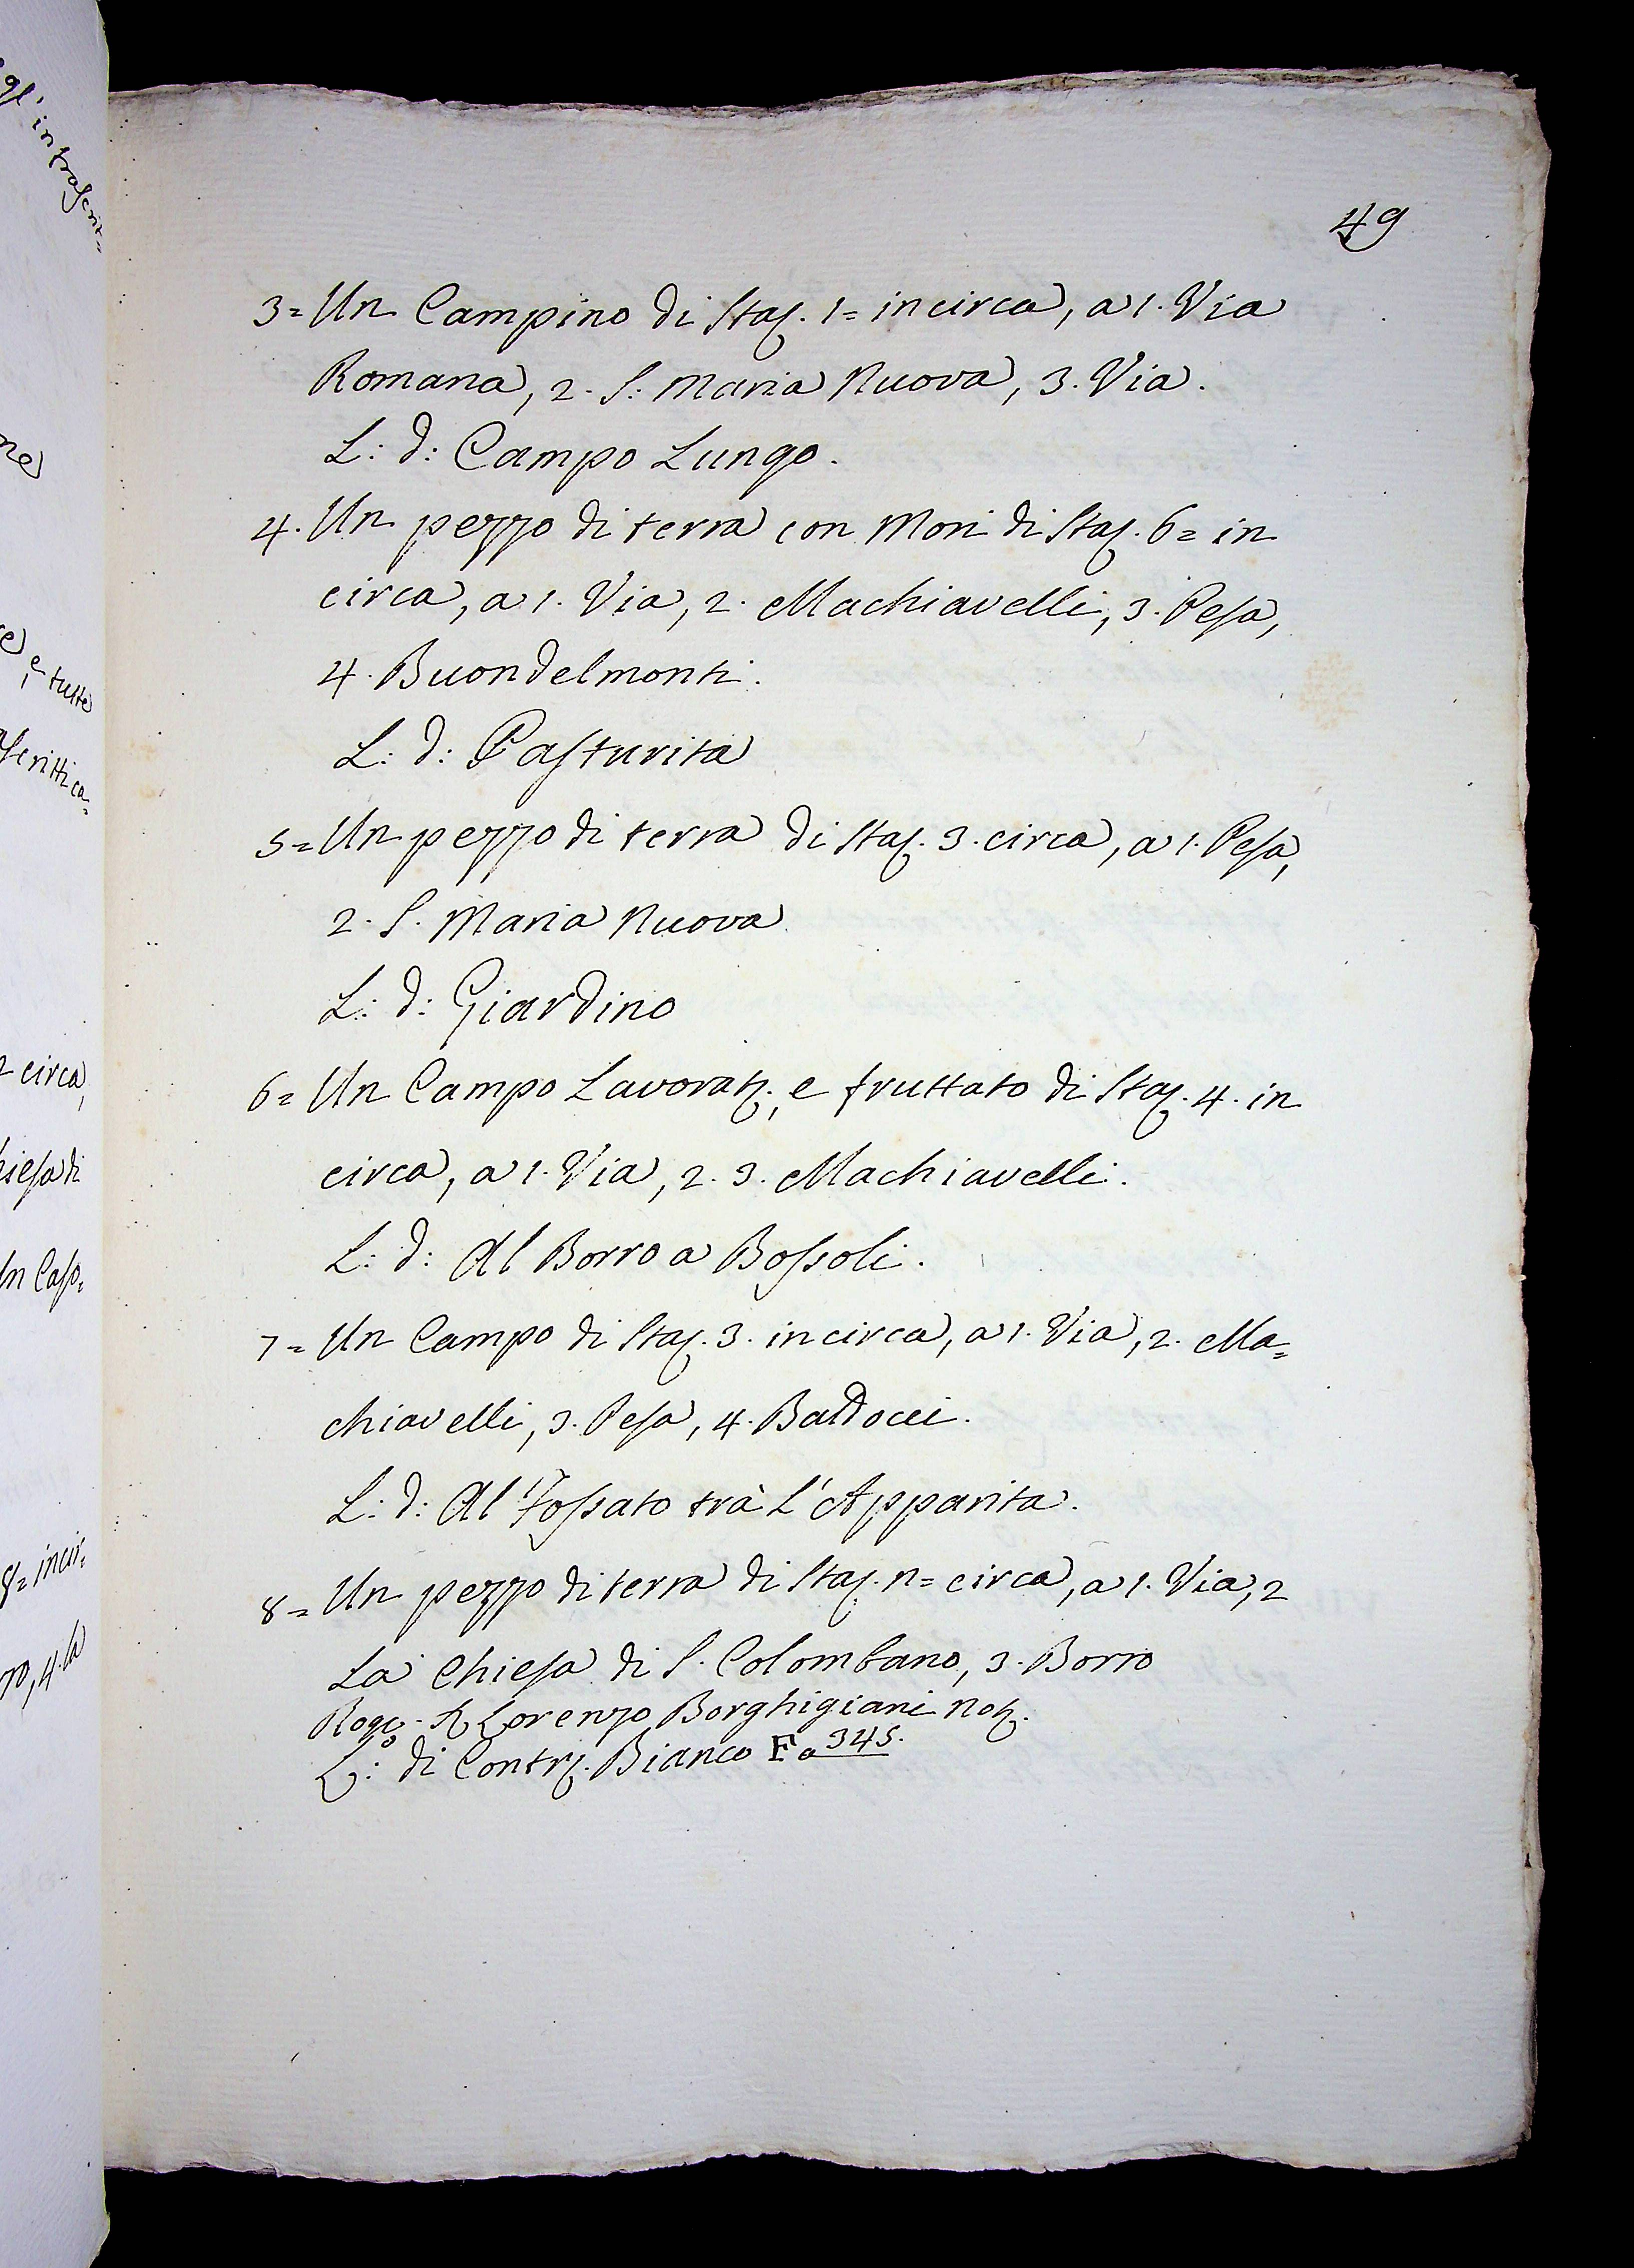 49
3= Un Campino di Staj. 1= incirca, a 1. Via
Romana, 2. S: Maria Nuova, 3. Via.
L: d: Campo Lungo.
4. Un pezzo di terra con Mori di Staj. 6= in
circa, a 1. Via, 2. Machiavelli, 3. Pesa,
4. Buondelmonti.
L: d: Pasturita
5= Un pezzo di terra di Staj. 3. circa, a 1. Pesa,
2. S. Maria Nuova
L: d: Giardino
6= Un Campo Lavorat., e fruttato di Staj. 4. in
circa, a 1. Via, 2. 3. Machiavelli.
L: d: Al Borro a Bossoli.
7= Un Campo di Staj. 3. incirca, a 1. Via, 2. Ma=
chiavelli, 3. Pesa, 4. Baldocci.
L: d: Al Fossato trà L'Apparita.
8= Un pezzo di terra di Staj. n= circa, a 1. Via, 2
La Chiesa di S. Colombano, 3. Borro
Rogo. Lorenzo Borghigiani Not.
L: di Contrj. Bianco Fo 345.
circa,
hiesa di
8= incir=